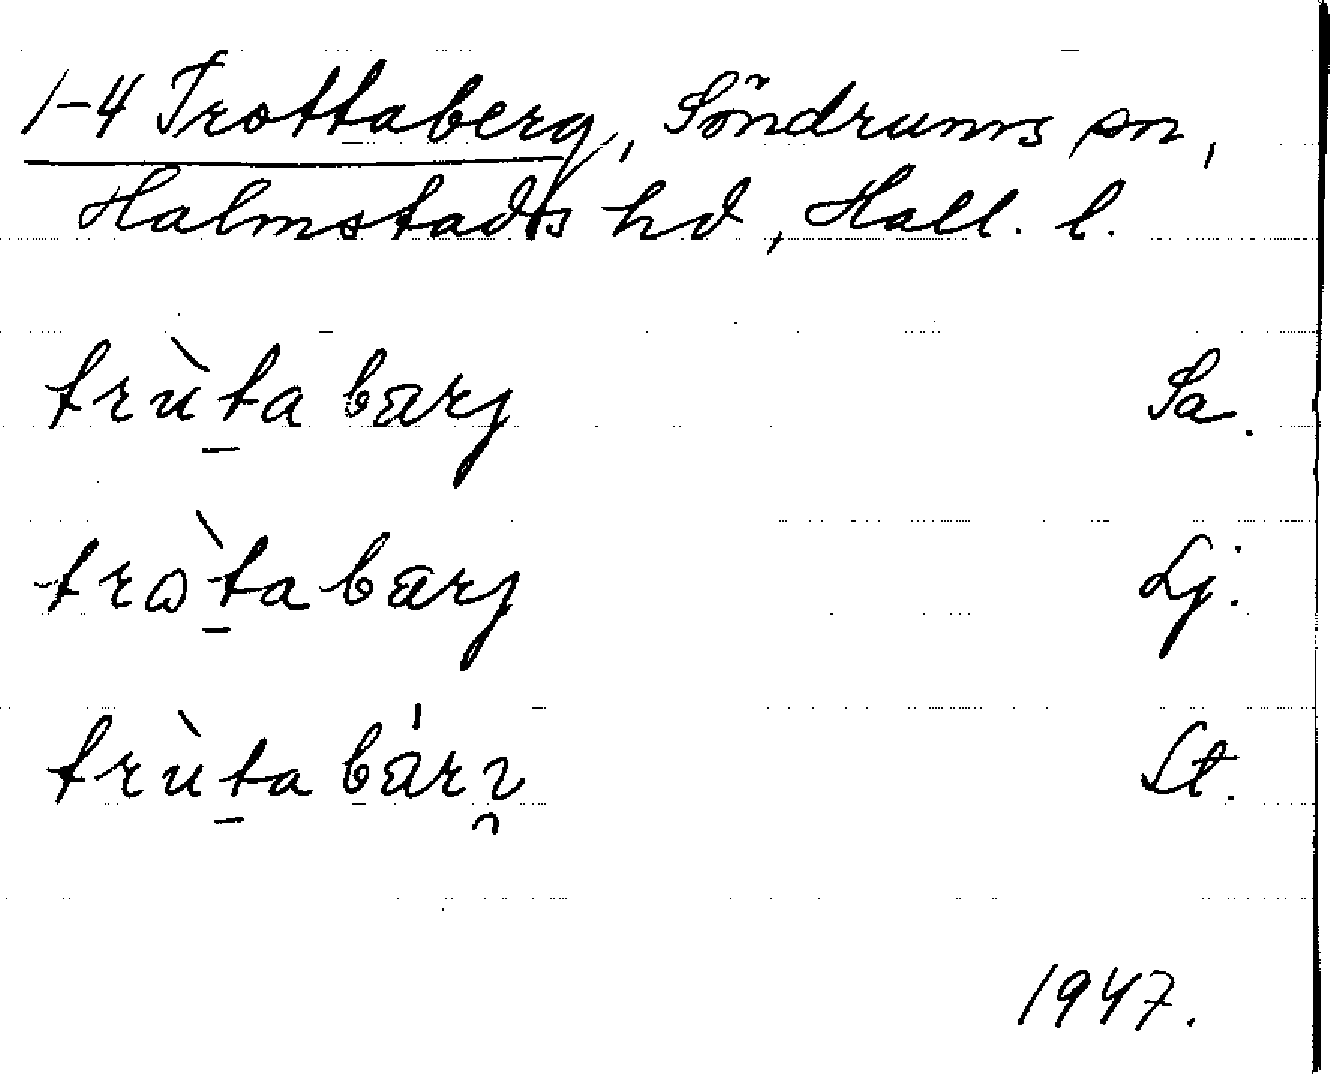 1-4 Trottaberg, Söndrums sn,
Halmstads hd, Hall. l.
trùta barj Sa.
tròta barj Lj.
trùta bárɿ̯ Lt.
1947.